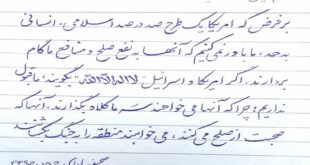 بر فرض که امریکا یک طرح صد در صد اسلامی - انسانی
بدهد، ما باور نمی‌کنیم که آنها به نفع صلح و منافع ما گام
بردارند. اگر امریکا و اسرائیل لا اله الا الله بگویند؛ ما قبول
نداریم؛ چرا که آنها می‌خواهند سر ما کلاه بگذارند. آنها که
صحبت از صلح می‌کنند، می‌خواهند منطقه را به جنگ بکشند